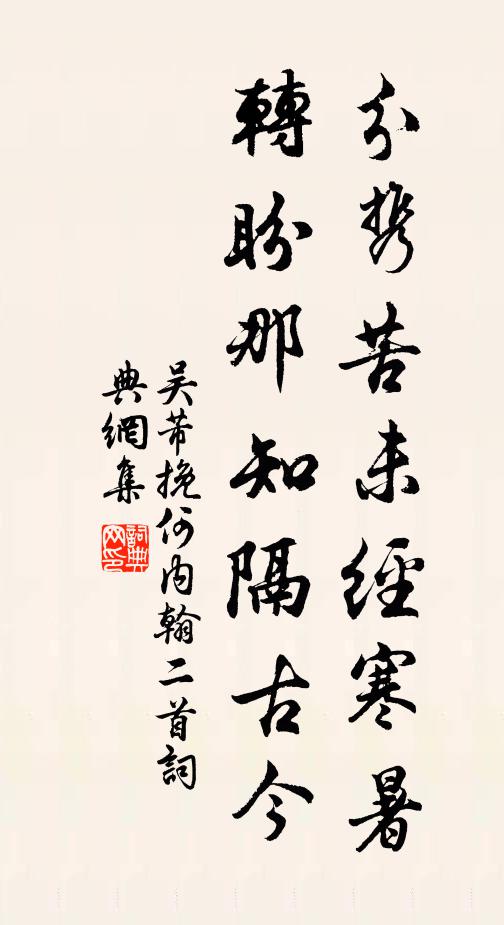 分携苦未經寒暑
轉盼那知隔古今
吳芾挽何內翰二首詞
典網集
詞典網印